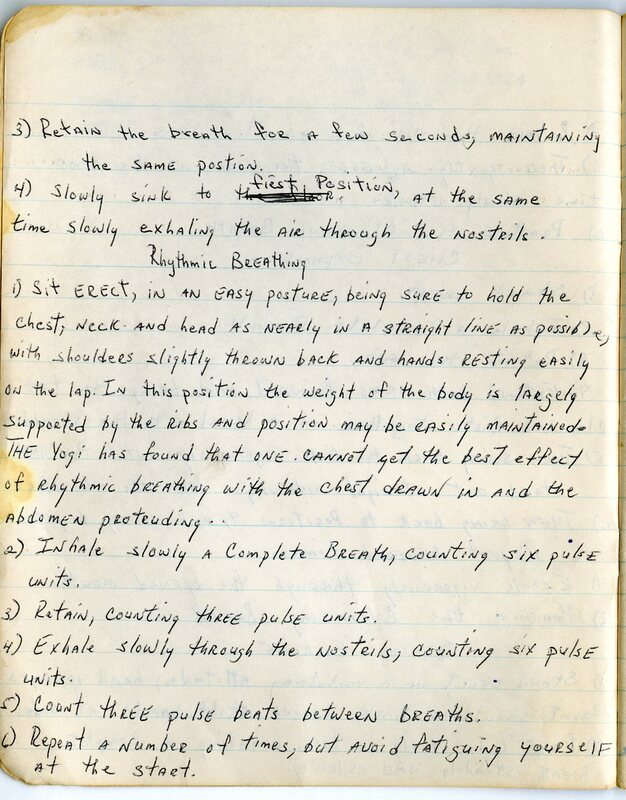 3) Retain the breath for a few seconds, maintaining
the same postion.
first Position,
4) Slowly sink to the floor, at the same
time slowly exhaling the air through the nostrils.
Rhythmic Breathing
1) Sit erect, in an easy posture, being sure to hold the
chest, neck and head as nearly in a straight line as possible,
with shoulders slightly thrown back and hands resting easily
on the lap. In this position the weight of the body is largely
supported by the ribs and position may be easily maintained.
The Yogi has found that one cannot get the best effect
of rhythmic breathing with the chest drawn in and the
abdomen protruding..
2) Inhale slowly a Complete Breath, counting six pulse
units.
3) Retain, counting three pulse units.
4) Exhale slowly through the nostrils, counting six pulse
units.
5) Count three pulse beats between breaths.
6) Repeat a number of times, but avoid fatiguing yourself
at the start.